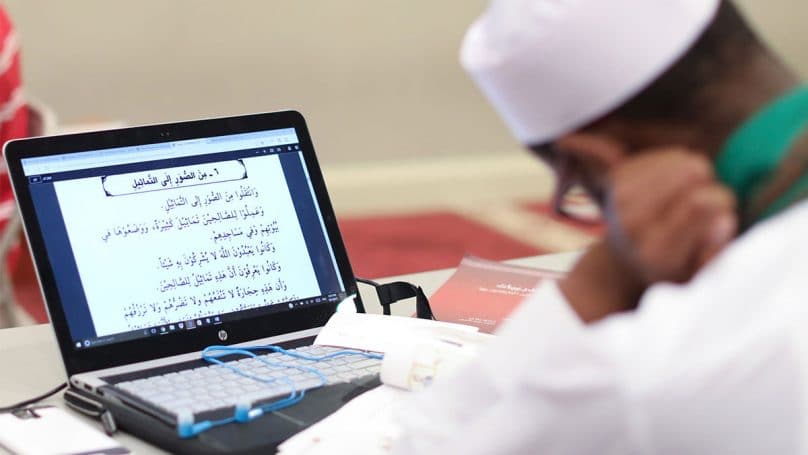 ٦ - مِنَ الصُّوَرِ إِلَى التَّمَاثِيلِ
وَانْتَقَلُوا مِنَ الصُّوَرِ إِلَى التَّمَاثِيلِ.
وَعَمِلُوا لِلصَّالِحِينَ تَمَاثِيلَ كَثِيرَةً، وَوَضَعُوهَا فِي
بُيُوتِهِمْ وَفِي مَسَاجِدِهِمْ.
وَكَانُوا يَعْبُدُونَ اللهَ لَا يُشْرِكُونَ بِهِ شَيْئًا.
وَكَانُوا يَعْرِفُونَ أَنَّ هَذِهِ تَمَاثِيلُ لِلصَّالِحِينَ.
وَأَنَّ هَذِهِ حِجَارَةٌ لَا تَنْفَعُهُمْ وَلَا تَضُرُّهُمْ وَلَا تَرْزُقُهُمْ
hp